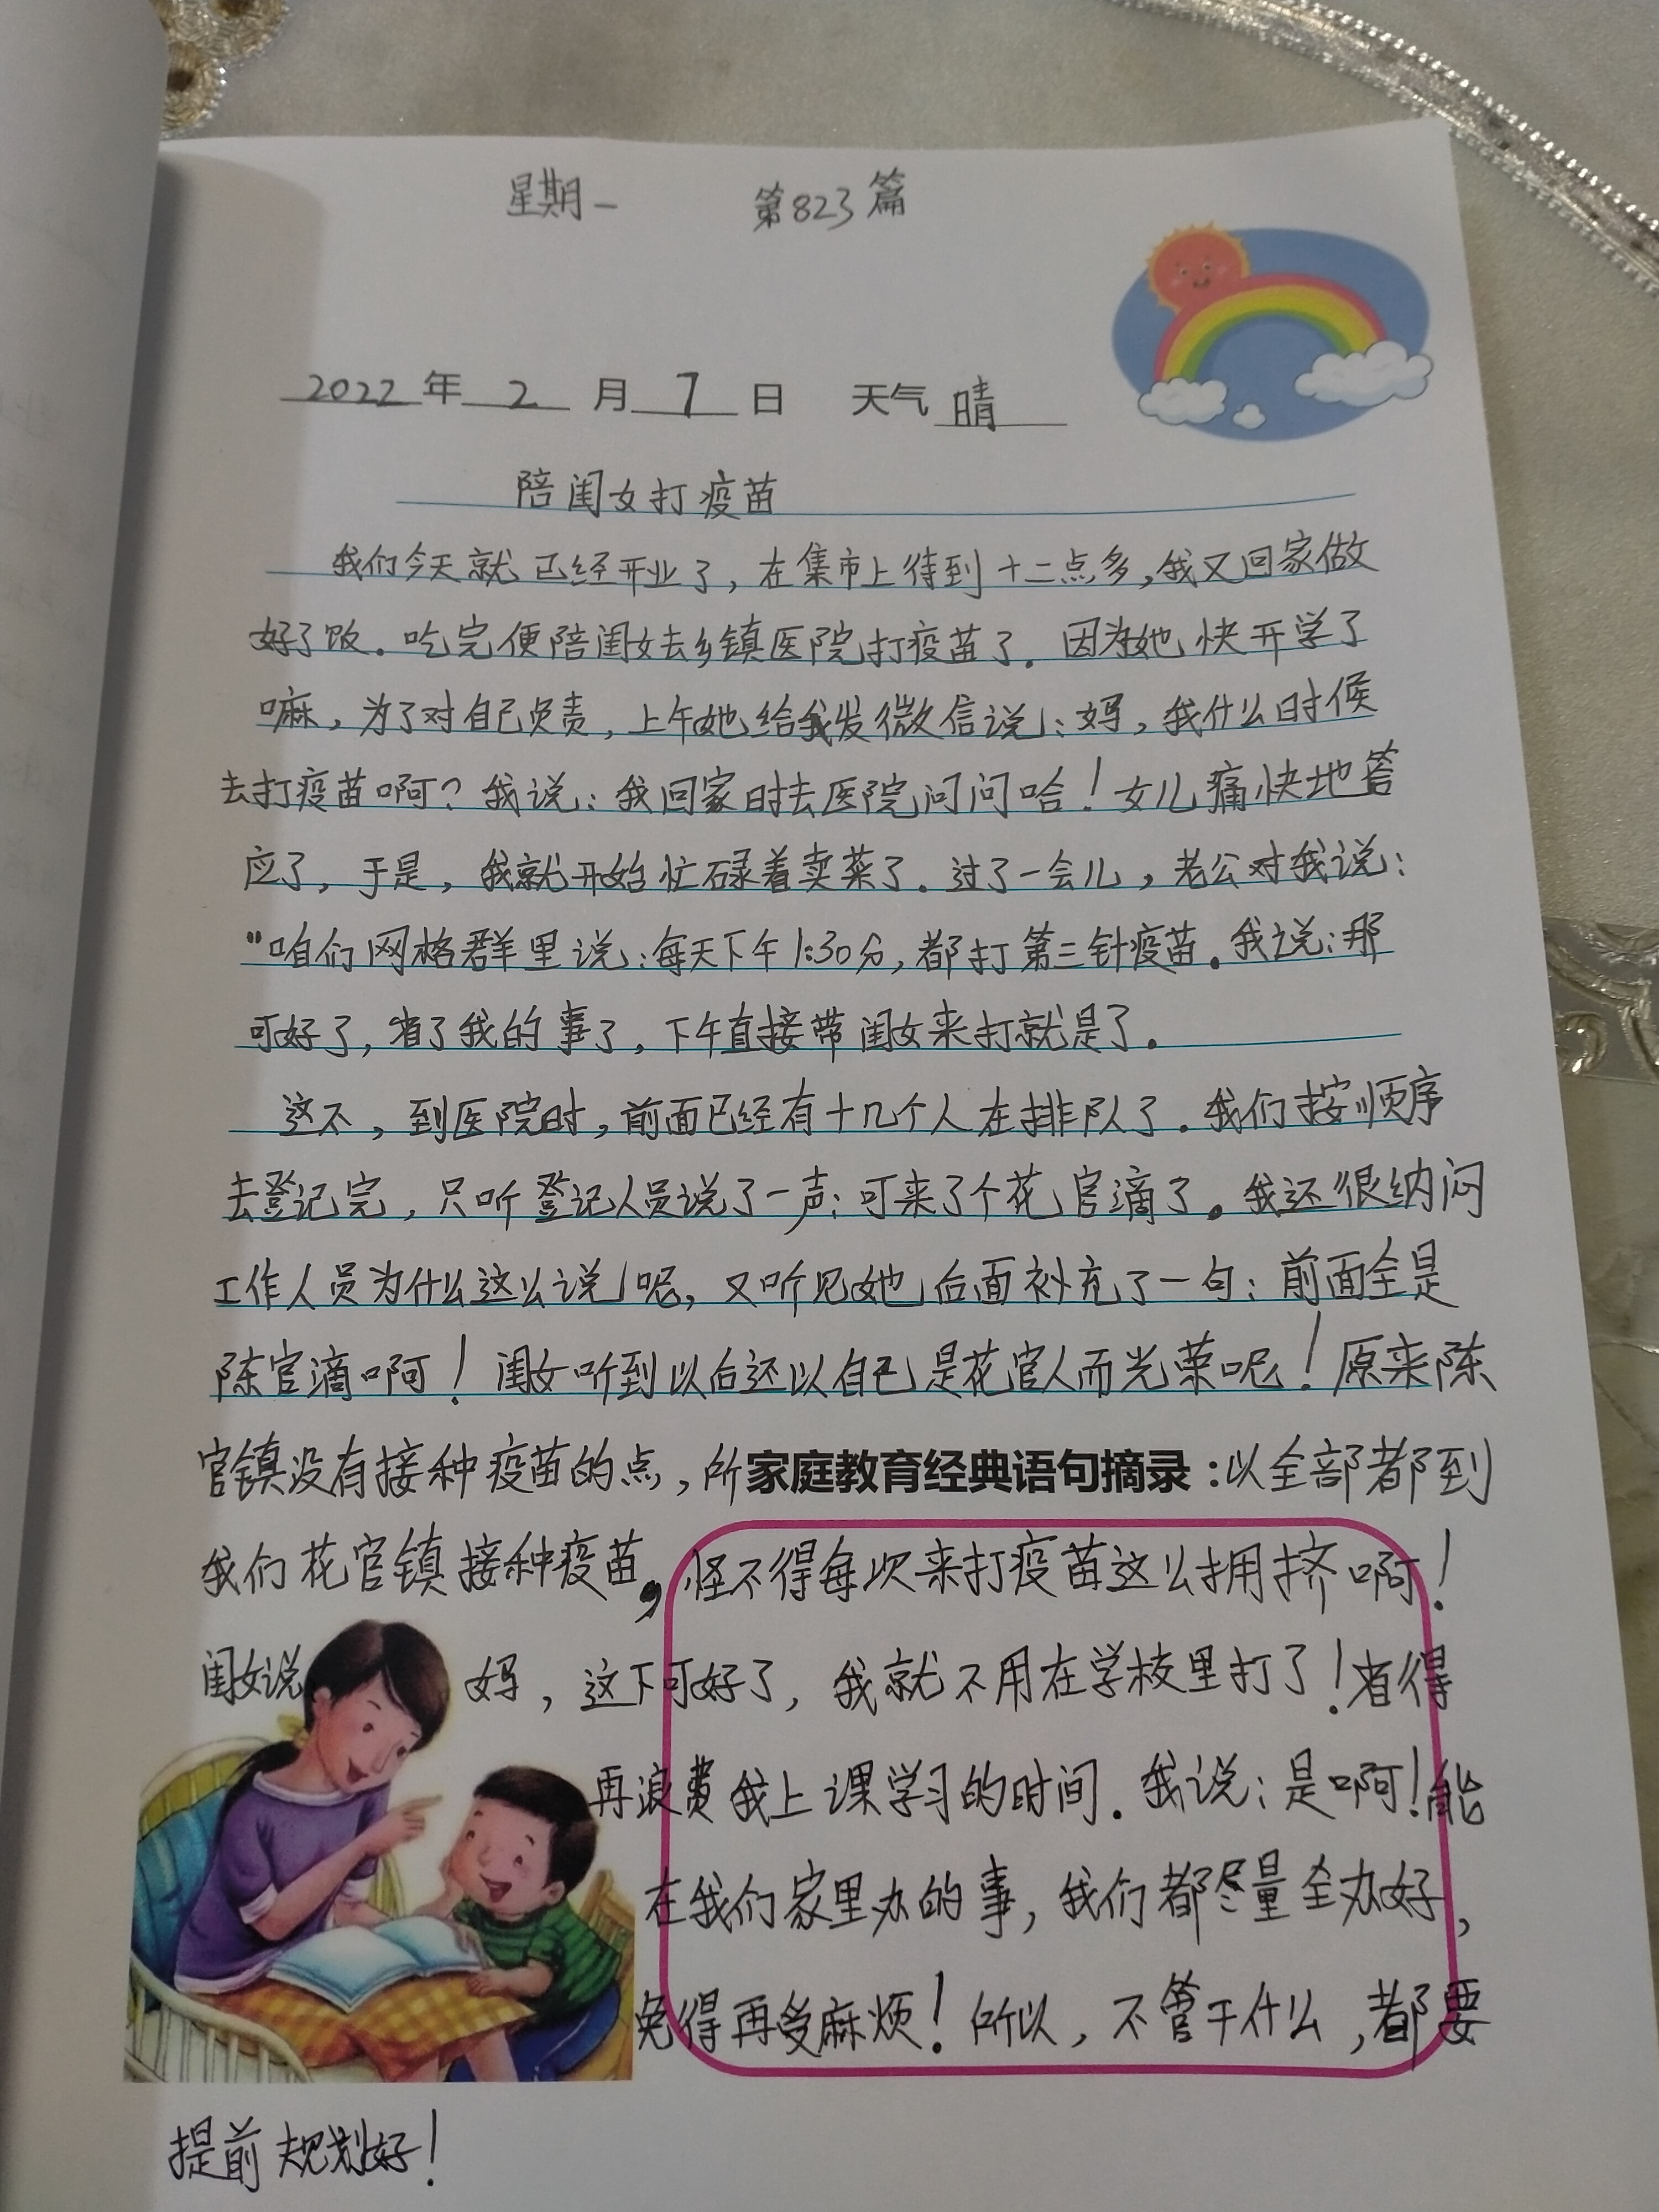 星期一 第823篇
2022年2月7日 天气晴
陪闺女打疫苗
我们今天就已经开业了，在集市上待到十二点多，我又回家做
好了饭。吃完便陪闺女去乡镇医院打疫苗了。因为她快开学了
嘛，为了对自己负责，上午她给我发微信说：妈，我什么时候
去打疫苗啊？我说：我回家时去医院问问哈！女儿痛快地答
应了，于是，我就开始忙碌着卖菜了。过了一会儿，老公对我说：
“咱们网格群里说：每天下午1:30分，都打第三针疫苗。我说：那
可好了，省了我的事了，下午直接带闺女来打就是了。
这不，到医院时，前面已经有十几个人在排队了。我们按顺序
去登记完，只听登记人员说了一声：可来了个花官滴了。我还很纳闷
工作人员为什么这么说呢，又听见她后面补充了一句：前面全是
陈官滴啊！闺女听到以后还以自己是花官人而光荣呢！原来陈
官镇没有接种疫苗的点，所家庭教育经典语句摘录：以全部都到
我们花官镇接种疫苗，怪不得每次来打疫苗这么拥挤啊！
闺女说 妈，这下可好了，我就不用在学校里打了！省得
再浪费我上课学习的时间。我说：是啊！能
在我们家里办的事，我们都尽量全办好，
免得再受麻烦！所以，不管干什么，都要
提前规划好！